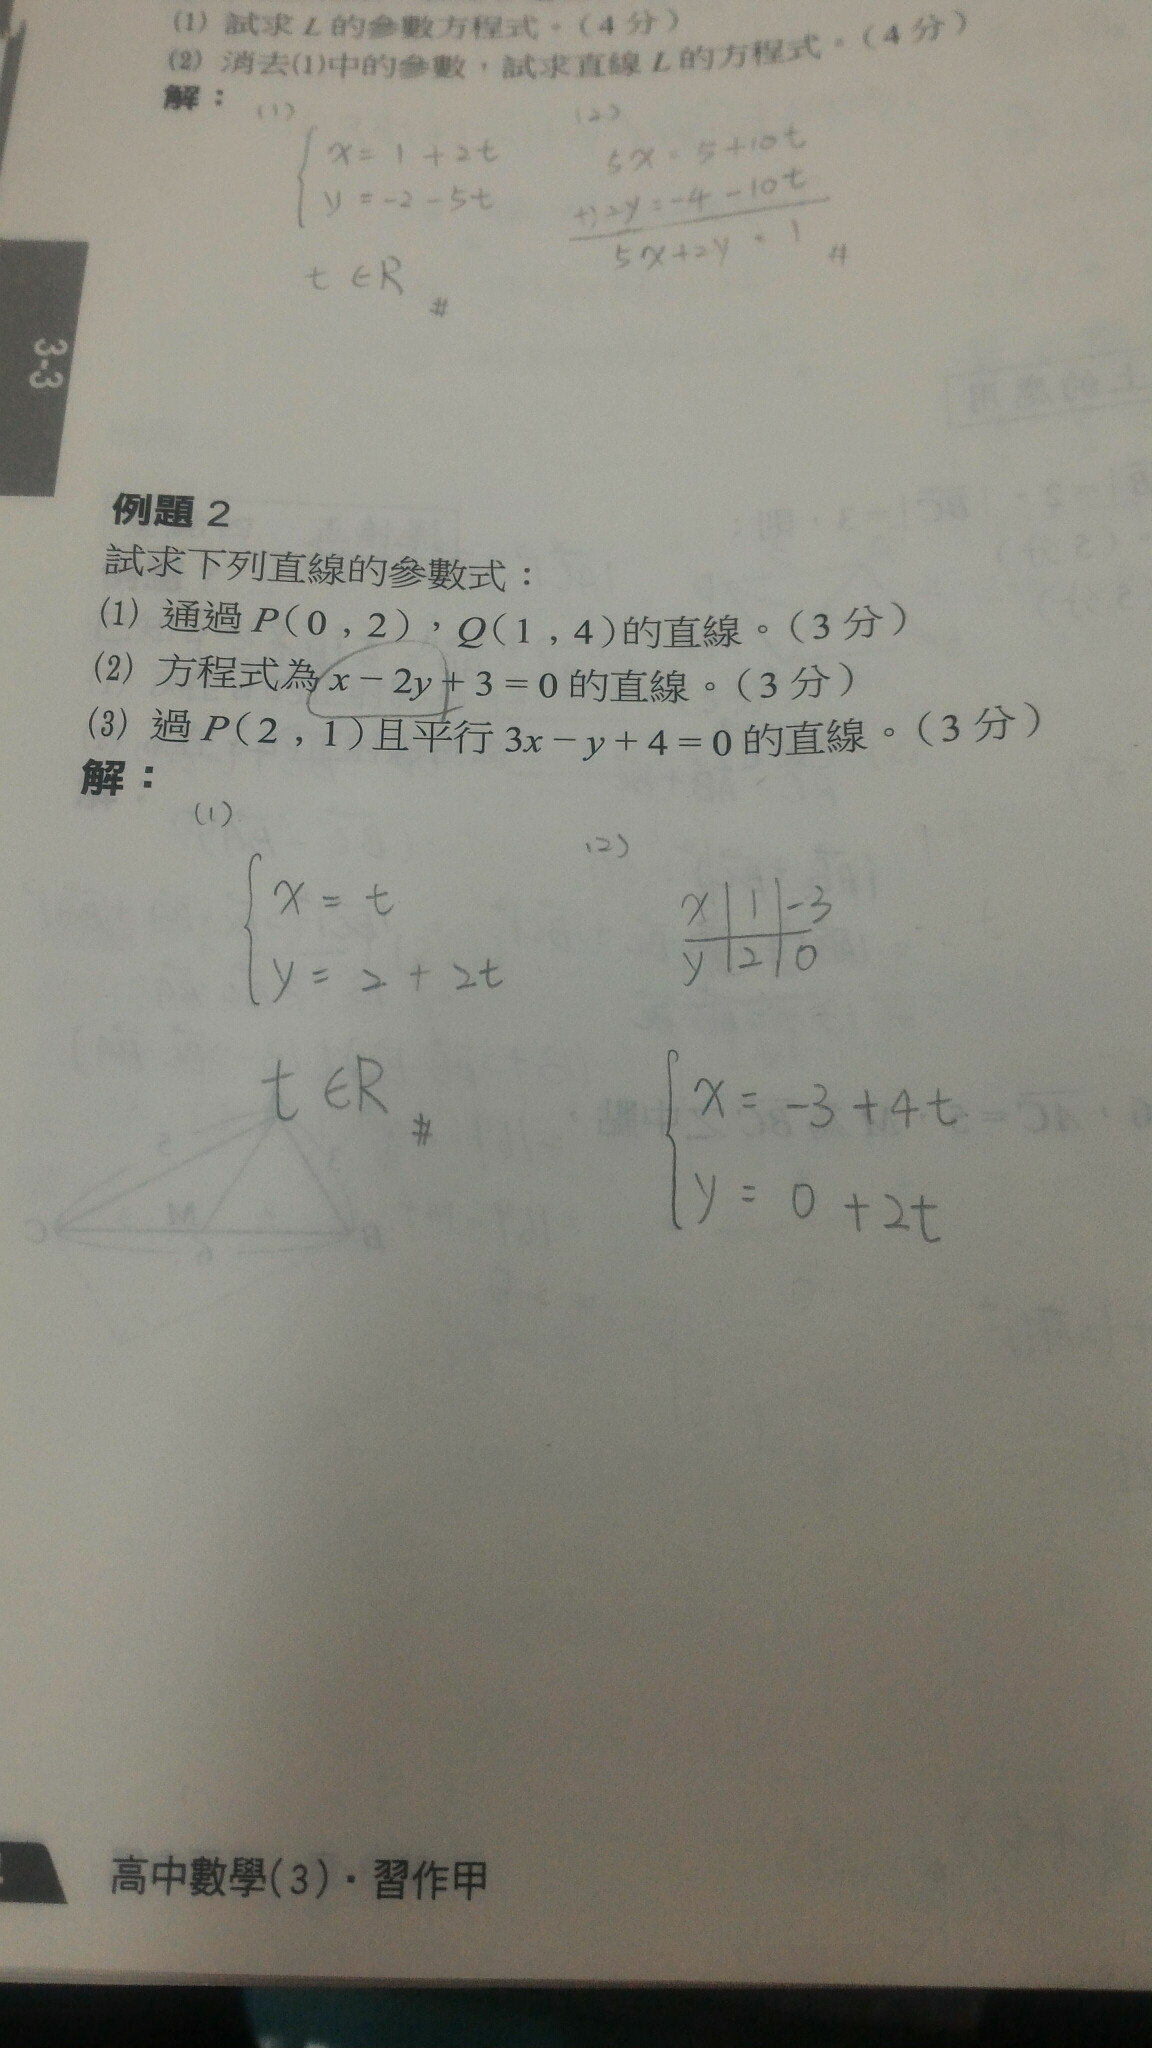 (1) 試求 L 的參數方程式。(4 分)
(2) 消去(1)中的參數，試求直線 L 的方程式。(4 分)
解：
(1)
x = 1 + 2t
y = -2 - 5t
t ∈R #
(2)
5x = 5+10t
+) 2y = -4 - 10t
5x+2y = 1 #
3-3
例題 2
試求下列直線的參數式：
(1) 通過 P(0，2)，Q(1，4)的直線。(3 分)
(2) 方程式為 x − 2y + 3 = 0 的直線。(3 分)
(3) 過 P(2，1)且平行 3x − y + 4 = 0 的直線。(3 分)
解：
(1)
x = t
y = 2 + 2t
t ∈R #
(2)
x | 1 | -3
y | 2 | 0
x = -3 + 4t
y = 0 + 2t
高中數學(3)．習作甲